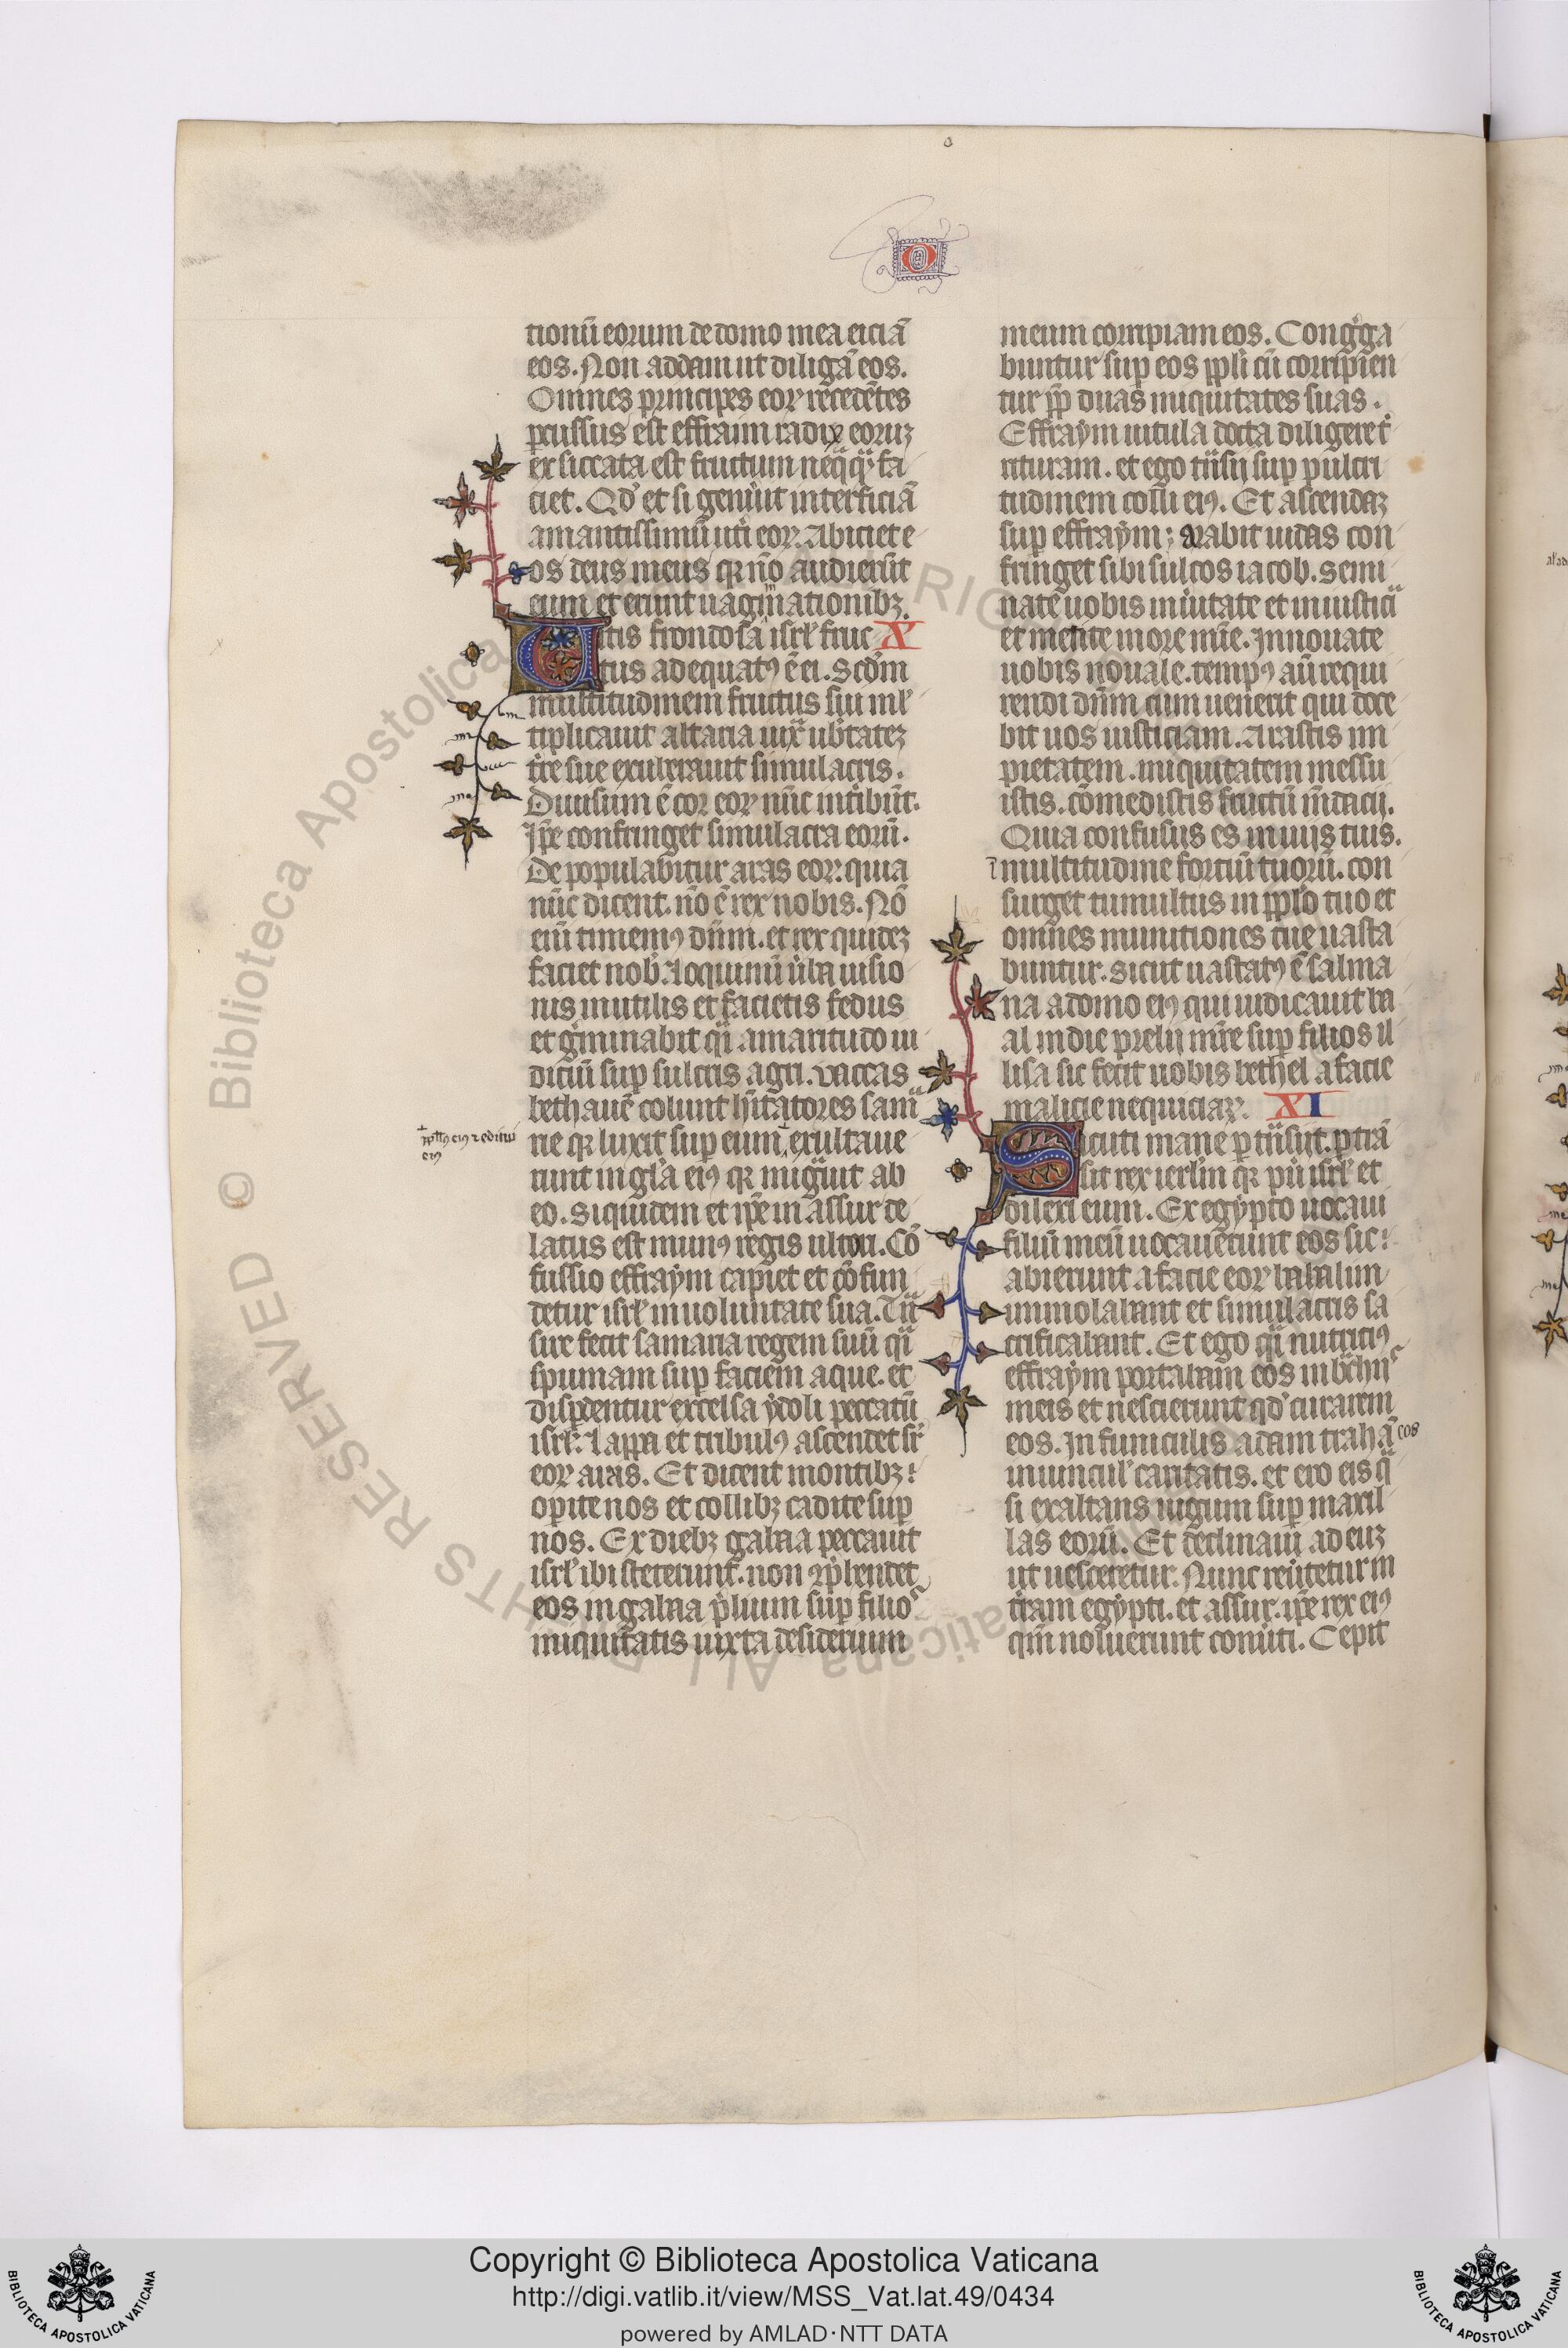 O
tionū eorum de domo mea eiciā
eos. Non addam ut diligā eos.
Omnes principes eoꝝ recedētes
ꝑcussus est effraim radix eoruꝫ
exsiccata est fructum neq̄q̄ fa
ciet. Qd' et si genuīt interficiā
amantissimū uti eoꝝ. Abiciet e
os deus meus qꝛ nō audierūt
eum et erunt uagi in nationibꝫ.
Uitis frondosa isrl' fruc X
tus adequatꝰ ē ei. Scdm
multitudinem fructus sui ml'
tiplicauit altaria iuxᵃ ub'tateꝫ
tr̄e sue exuberauit simulacris.
Diuisum ē cor eoꝝ nūc intibūt.
Ip̄e confringet simulacra eorū.
De populabitur aras eoꝝ. quia
nūc dicent. nō ē rex nobis. Nō
eiū timemꝰ dn̄m. et rex quideꝫ
faciet nob̄. Loquimī ūba uisio
nis inutilis et facietis fedus
et gīminabit qᵃi amaritudo iu
diciū suꝑ sulcus agri. Vaccas
bethauē colunt hītatores samᵃ
rie qꝛ luxit suꝑ eum exultaue
runt in gl'a eiꝰ qꝛ migᵃuit ab
eo. Siquidem et ip̄e in assur de
latus est munꝰ regis ultori. Cō
fussio effraym capiet et cōfun
detur isrl' in uoluntate sua. Tᵃ
sire fecit samaria regem suū qᵃi
spumam suꝑ faciem aque. et
disꝑdentur excelsa ydoli peccatū
isrl'. Lappa et tribulꝰ ascendet sꝛ
eoꝝ aras. Et dicent montibꝫ:
oꝑite nos et collibꝫ cadite suꝑ
nos. Ex diebꝫ gabaa peccauit
isrl' ibi steterunt. non ꝯp̄hendet
eos in gabaa p̄lium suꝑ filios
iniquitatis iuxta desiderium
meum corripiam eos. Congᵉga
buntur suꝑ eos pp̄li cū corripien
tur ꝓp̄ duas iniquitates suas.
Effraym uitula docta diligere t̄
trituram. et ego tᵃnsii suꝑ pulcri
tudinem colli eiꝰ. Et ascendaꝫ
suꝑ effraym; arabit iudas con
fringet sibi sulcos iacob. Semi
nate uobis in iūtate et in iusticiᵃ
et metite in ore mīe. Innouate
uobis nouale. tempꝰ aū requi
rendi dn̄m cum uenerit qui doce
bit uos iusticiam. Arastis im
pietatem. iniquitatem messu
istis. cōmedistis fructū m̄dacij.
Quia confusus es in uijs tuis.
ī multitudine fortiū tuorū. con
surget tumultus in pp̄lo tuo et
omnes munitiones tue uasta
buntur. Sicut uastatꝰ ē salma
na a domo eiꝰ qui iudicauit ba
al in die prelij mr̄e suꝑ filios il
lisa sic fecit uobis bethel a facie
malicie nequiciaꝝ. XI
Sicuti mane ꝑtᵃnsijt. ꝑtrā
sit rex ierl'm qꝛ puᵉ isrl' et
dilexi eum. Ex egypto uocaui
filiū meū uocauerunt eos sic:
abierunt a facie eoꝝ bahalim
immolabant et simulacris sa
crificabant. Et ego qᵃi nutritiꝰ
effraym portabam eos in bᵃchiis
meis et nescierunt qd' curarem
eos. In funiculis adam trahā eos
in uinculꝭ caritatis. et ero eis qᵃ
si exaltans iugum suꝑ maxil
las eorū. Et declinaui ad euꝫ
ut uesceretur. Nunc reūtetur in
tr̄am egypti. et assur. ip̄e rex eiꝰ
qm̄ noluerunt conūti. Cepit
Copyright © Biblioteca Apostolica Vaticana
http://digi.vatlib.it/view/MSS_Vat.lat.49/0434
powered by AMLAD·NTT DATA
BIBLIOTECA APOSTOLICA VATICANA
BIBLIOTECA APOSTOLICA VATICANA